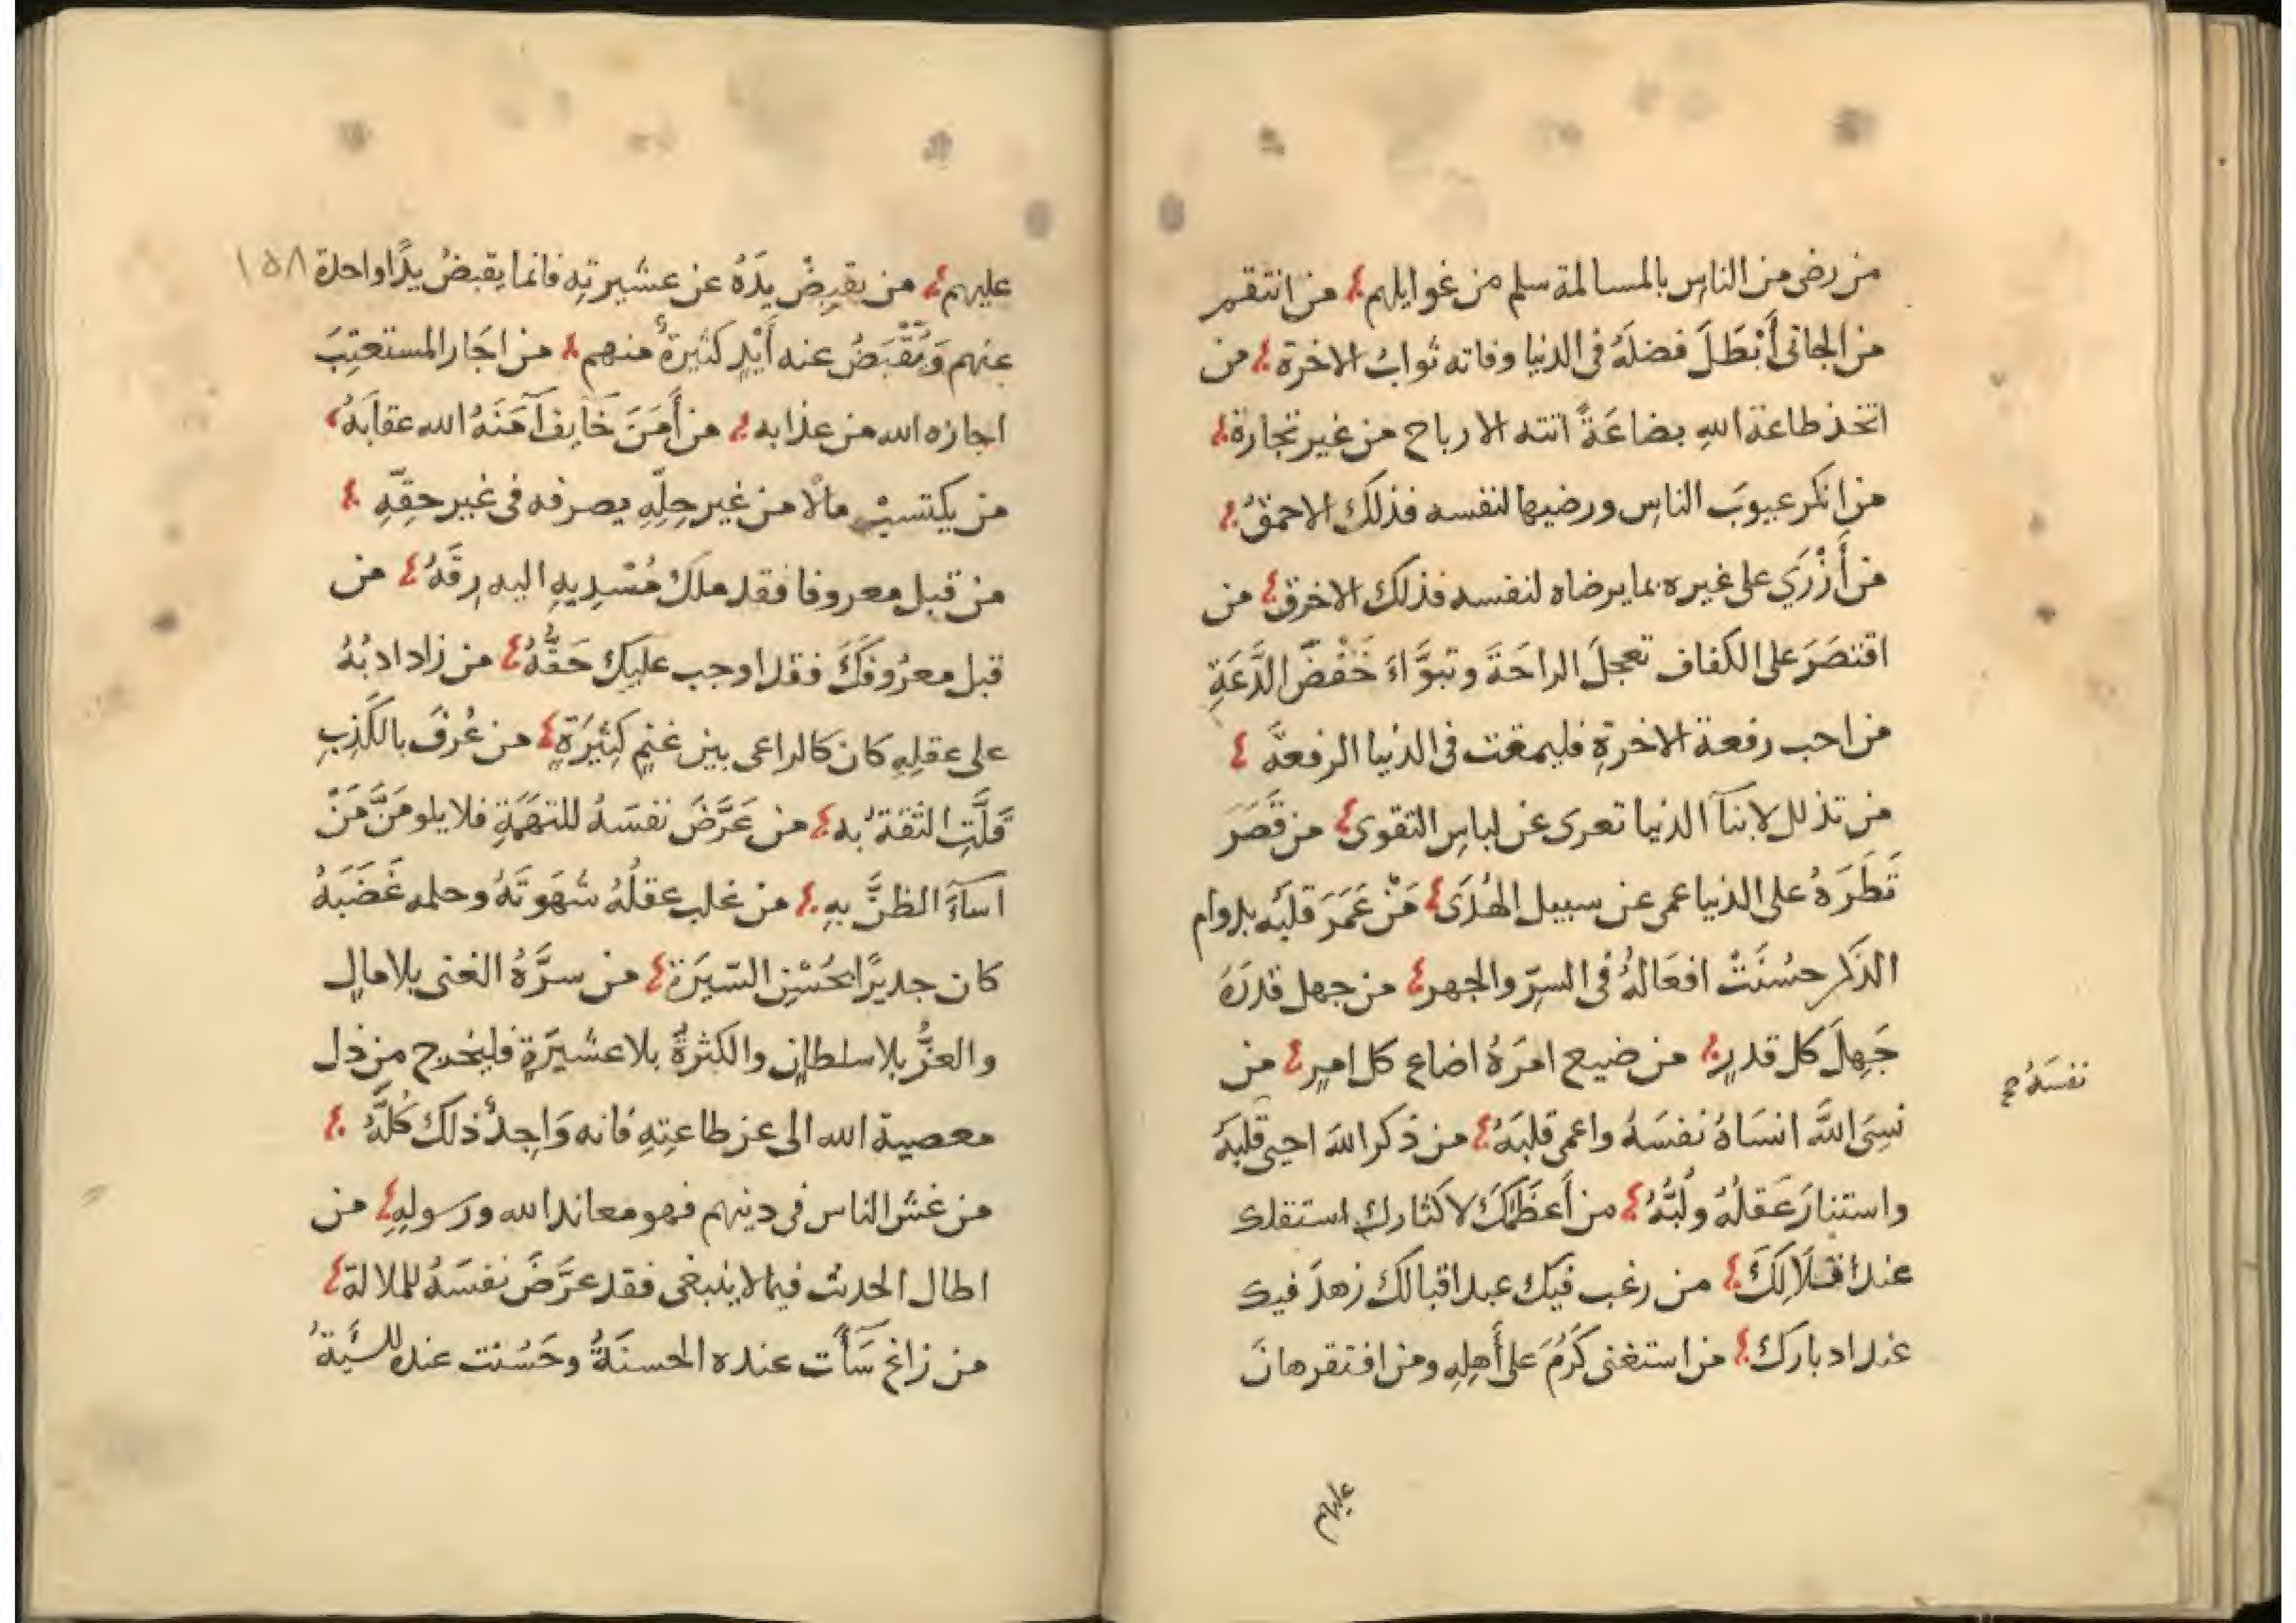 من رضى من الناس بالمسالمة سلم من غوايلهم من انتقم
من الجانى أَبْطَلَ فضلَهُ فى الدنيا وفاته ثوابُ الاخرة من
اتخذ طاعة اللهِ بضاعَةً اتته الارباح من غير تجارة
من انكر عيوبَ الناسِ ورضيها لنفسه فذلكَ الاحمقُ
من أَزْرَي على غيره بما يرضاه لنفسه فذلك الاخرق من
اقتصَرَ على الكفاف تعجلَ الراحَةَ وتبوَّاءَ خَفْضَ الدَّعَةِ
من احب رفعة الاخرةِ فليمقت فى الدنيا الرفعةَ
من تذلل لابنآ الدنيا تعرى عن لباسِ التقوى من قَصَرَ
نَطَرَهُ على الدنيا عمى عن سبيل الهُدَى مَنْ عَمَرَ قلبَه بدوام
الذكر حسُنَتْ افعَالهُ فى السِرّ والجهر من جهل قدرَهُ
جَهِلَ كل قدرٍ من ضيع امرَهُ اضاع كل امرٍ من
نسِىَ اللهَ انسَاهُ نفسَهُ واعمى قلبَهُ من ذكر اللهَ احيى قلبَهُ
نفسَهُ صح
واستنارَ عَقلُهُ ولُبُّهُ من أَعظَمَكَ لاكثارك استقلك
عند اقلَالِكَ من رغب فيك عند اقبالك زهدَ فيك
عند ادبارك من استغنى كَرُمَ على أَهلِهِ ومن افتقر هانَ
عليهم
١٥٨
عليهم من يقبِضْ يدَهُ عن عشيرتِهِ فانما يقبضُ يدًا واحدة
عنهم وَيُقْبَضُ عنه أَيْدٍ كثيرةٌ منهم من اجَار المستغيثَ
اجازه الله من عذابه من أَمَنَ خَايِفًا آمَنَهُ الله عقابَهُ
من يكتسبْ مالًا من غير حِلِّهِ يصرفه فى غير حقِّهِ
من قبل معروفا فقد ملكَ مُسْدِيهِ اليه رِقَّهُ من
قبل معرُوفَكَ فقد اوجب عليك حَقَّهُ من زاد ادبُهُ
على عقلِهِ كان كالراعى بين غنمٍ كثيرَةٍ من عُرِفَ بالكَذِبِ
قَلَّتِ الثقةُ به من عَرَّضَ نفسَهُ للتهَمَةِ فلا يلومَنَّ مَنْ
اسآءَ الظنَّ بهِ من غلب عقلُهُ شهَوتَهُ وحلمه غَضَبَهُ
كان جديرًا بحُسْنِ السّيرَة من سرَّهُ الغنى بلا مالٍ
والعزُّ بلا سلطانٍ والكثرةُ بلا عشيرَةٍ فليخرج من ذل
معصية الله الى عز طاعتِهِ فانه وَاجِدُ ذلك كُلَّهُ
من غش الناس فى دينهم فهو معاند الله ورسولِهِ من
اطال الحديث فيما لا ينبغى فقد عرَّضَ نفسَهُ للملالة
من زاغ سَآَت عنده الحسنَةُ وحَسُنت عنده السَّيئةُ